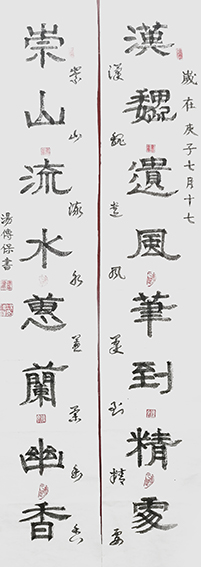 歲在庚子七月十七
漢魏遺風筆到精處
漢魏遺風筆到精處
崇山流水蕙蘭幽香
崇山流水蕙蘭幽香
湯傳保書